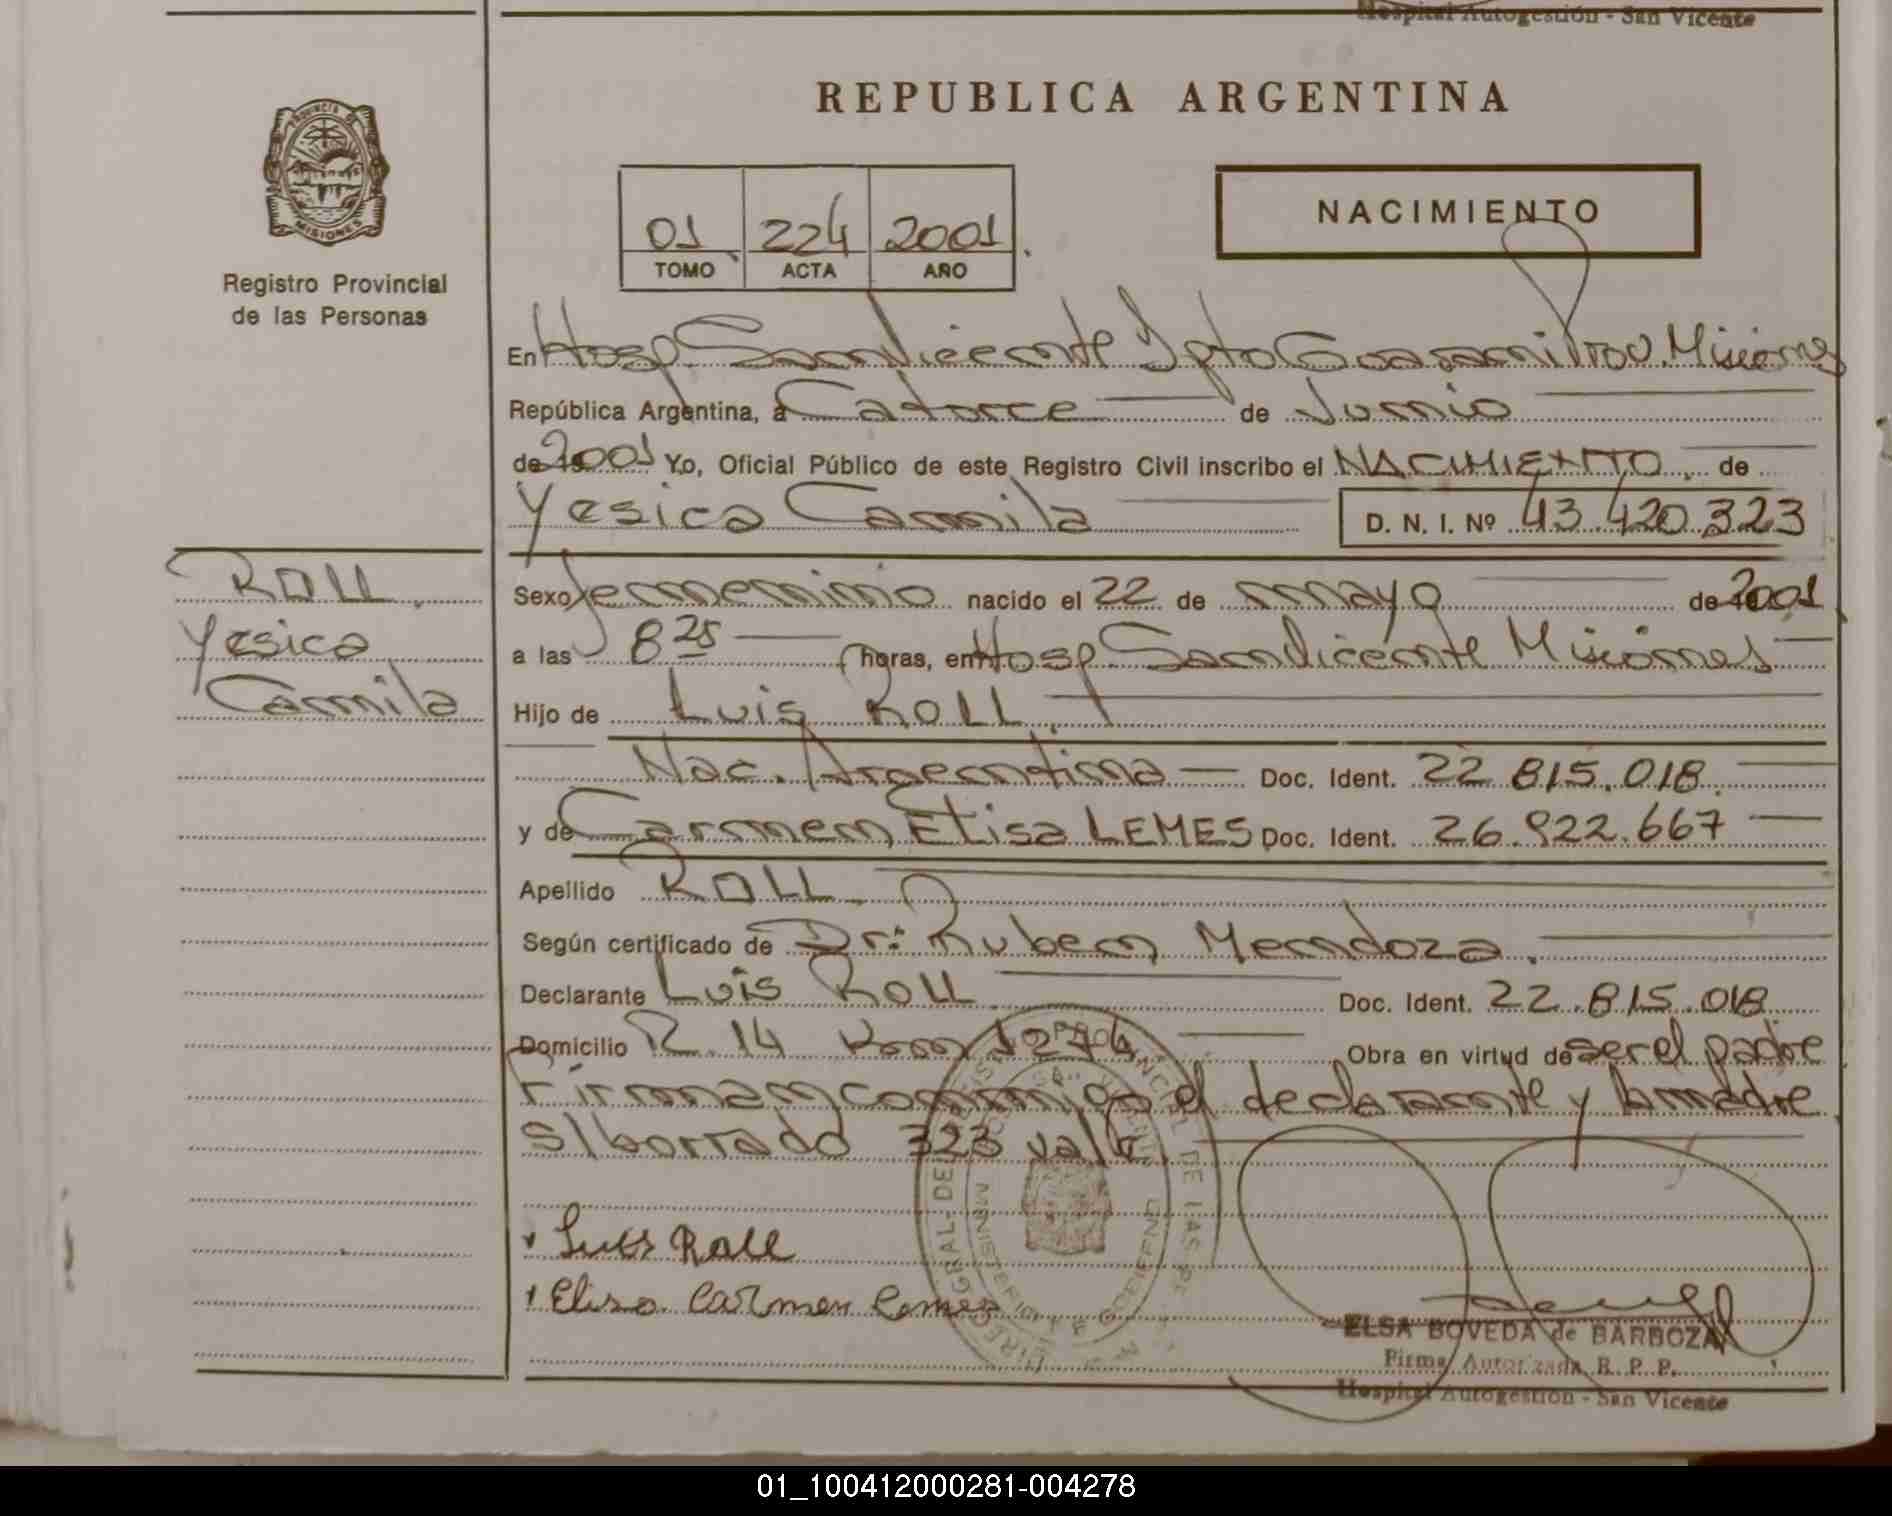 Hospital Autogestión - San Vicente
REPUBLICA ARGENTINA
PROVINCIA DE
MISIONES
Registro Provincial
de las Personas
01 224 2001
TOMO ACTA AÑO
NACIMIENTO
En Hosp. San Vicente Dpto Guarani Prov. Misiones
República Argentina, a Catorce de Junio
de 2001 Yo, Oficial Público de este Registro Civil inscribo el NACIMIENTO de
Yesica Camila D. N. I. Nº 43.420.323
ROLL
Yesica
Camila
Sexo femenino nacido el 22 de mayo de 2001
a las 8 25 horas, en Hosp. San Vicente Misiones
Hijo de Luis ROLL
Nac. Argentina Doc. Ident. 22.815.018
y de Carmen Elisa LEMES Doc. Ident. 26.922.667
Apellido ROLL
Según certificado de Dr: Ruben Mendoza.
Declarante Luis ROLL Doc. Ident. 22.815.018
Domicilio R. 14 Km 1274 Obra en virtud de ser el padre
Firman conmigo el declarante y la madre
s/borrado 323 vale.
Luis Roll
Elisa Carmen Lemes
ELSA BOVEDA de BARBOZA
Firma Autorizada R. P. P.
Hospital Autogestión - San Vicente
01_100412000281-004278